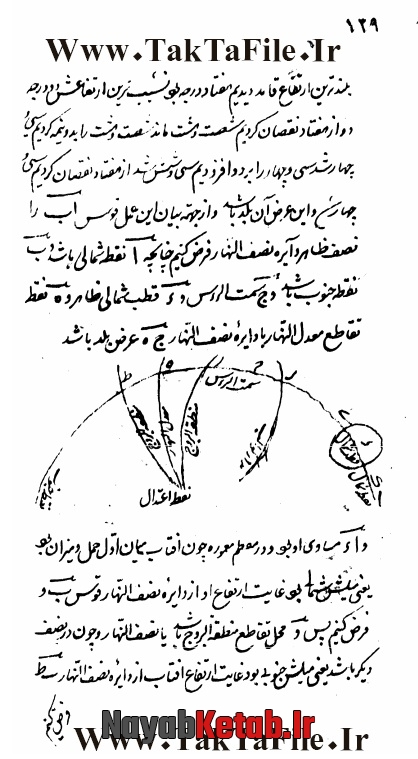 ۱۲۹
Www.TakTaFile.Ir
بلندترین ارتفاع قامد دیدیم هفتاد درجه بود نشیب ترین ارتفاعش دو درجه
دو از هفتاد نقصان کردیم شصت و هشت ماند شصت و هشت را بدو نیمه کردیم سی و
چهار شد سی و چهار را بر دو افزودیم سی و شش شد از هفتاد نقصان کردیم سی و
چهار واین عرض آن بلد باشد و از جهة بیان این عمل قوس اب را
نصف ظاهر دایره نصف النهار فرض کنیم چنانچه ا نقطه شمالی باشد و ب
نقطه جنوب باشد و ج سمت الرؤس و ء قطب شمالی ظاهر و ه نقطه
تقاطع معدل النهار با دایره نصف النهار ج ه عرض بلد باشد
سمت الرؤس
منطقة البروج
نقطه اعتدال
نقطه شمال
و ا ء مساوی او بود و در معظم معموره چون آفتاب میان اول حمل و میزان بود
یعنی میلش شمالی بود غایت ارتفاع او از دایره نصف النهار قوس ب و
فرض کنیم پس و محل تقاطع منطقة البروج باشد با نصف النهار و چون در نصف
دیگر باشد یعنی میلش جنوبی بود غایت ارتفاع آفتاب از دایره نصف النهار ب ط
NayabKetab.Ir
Www.TakTaFile.Ir